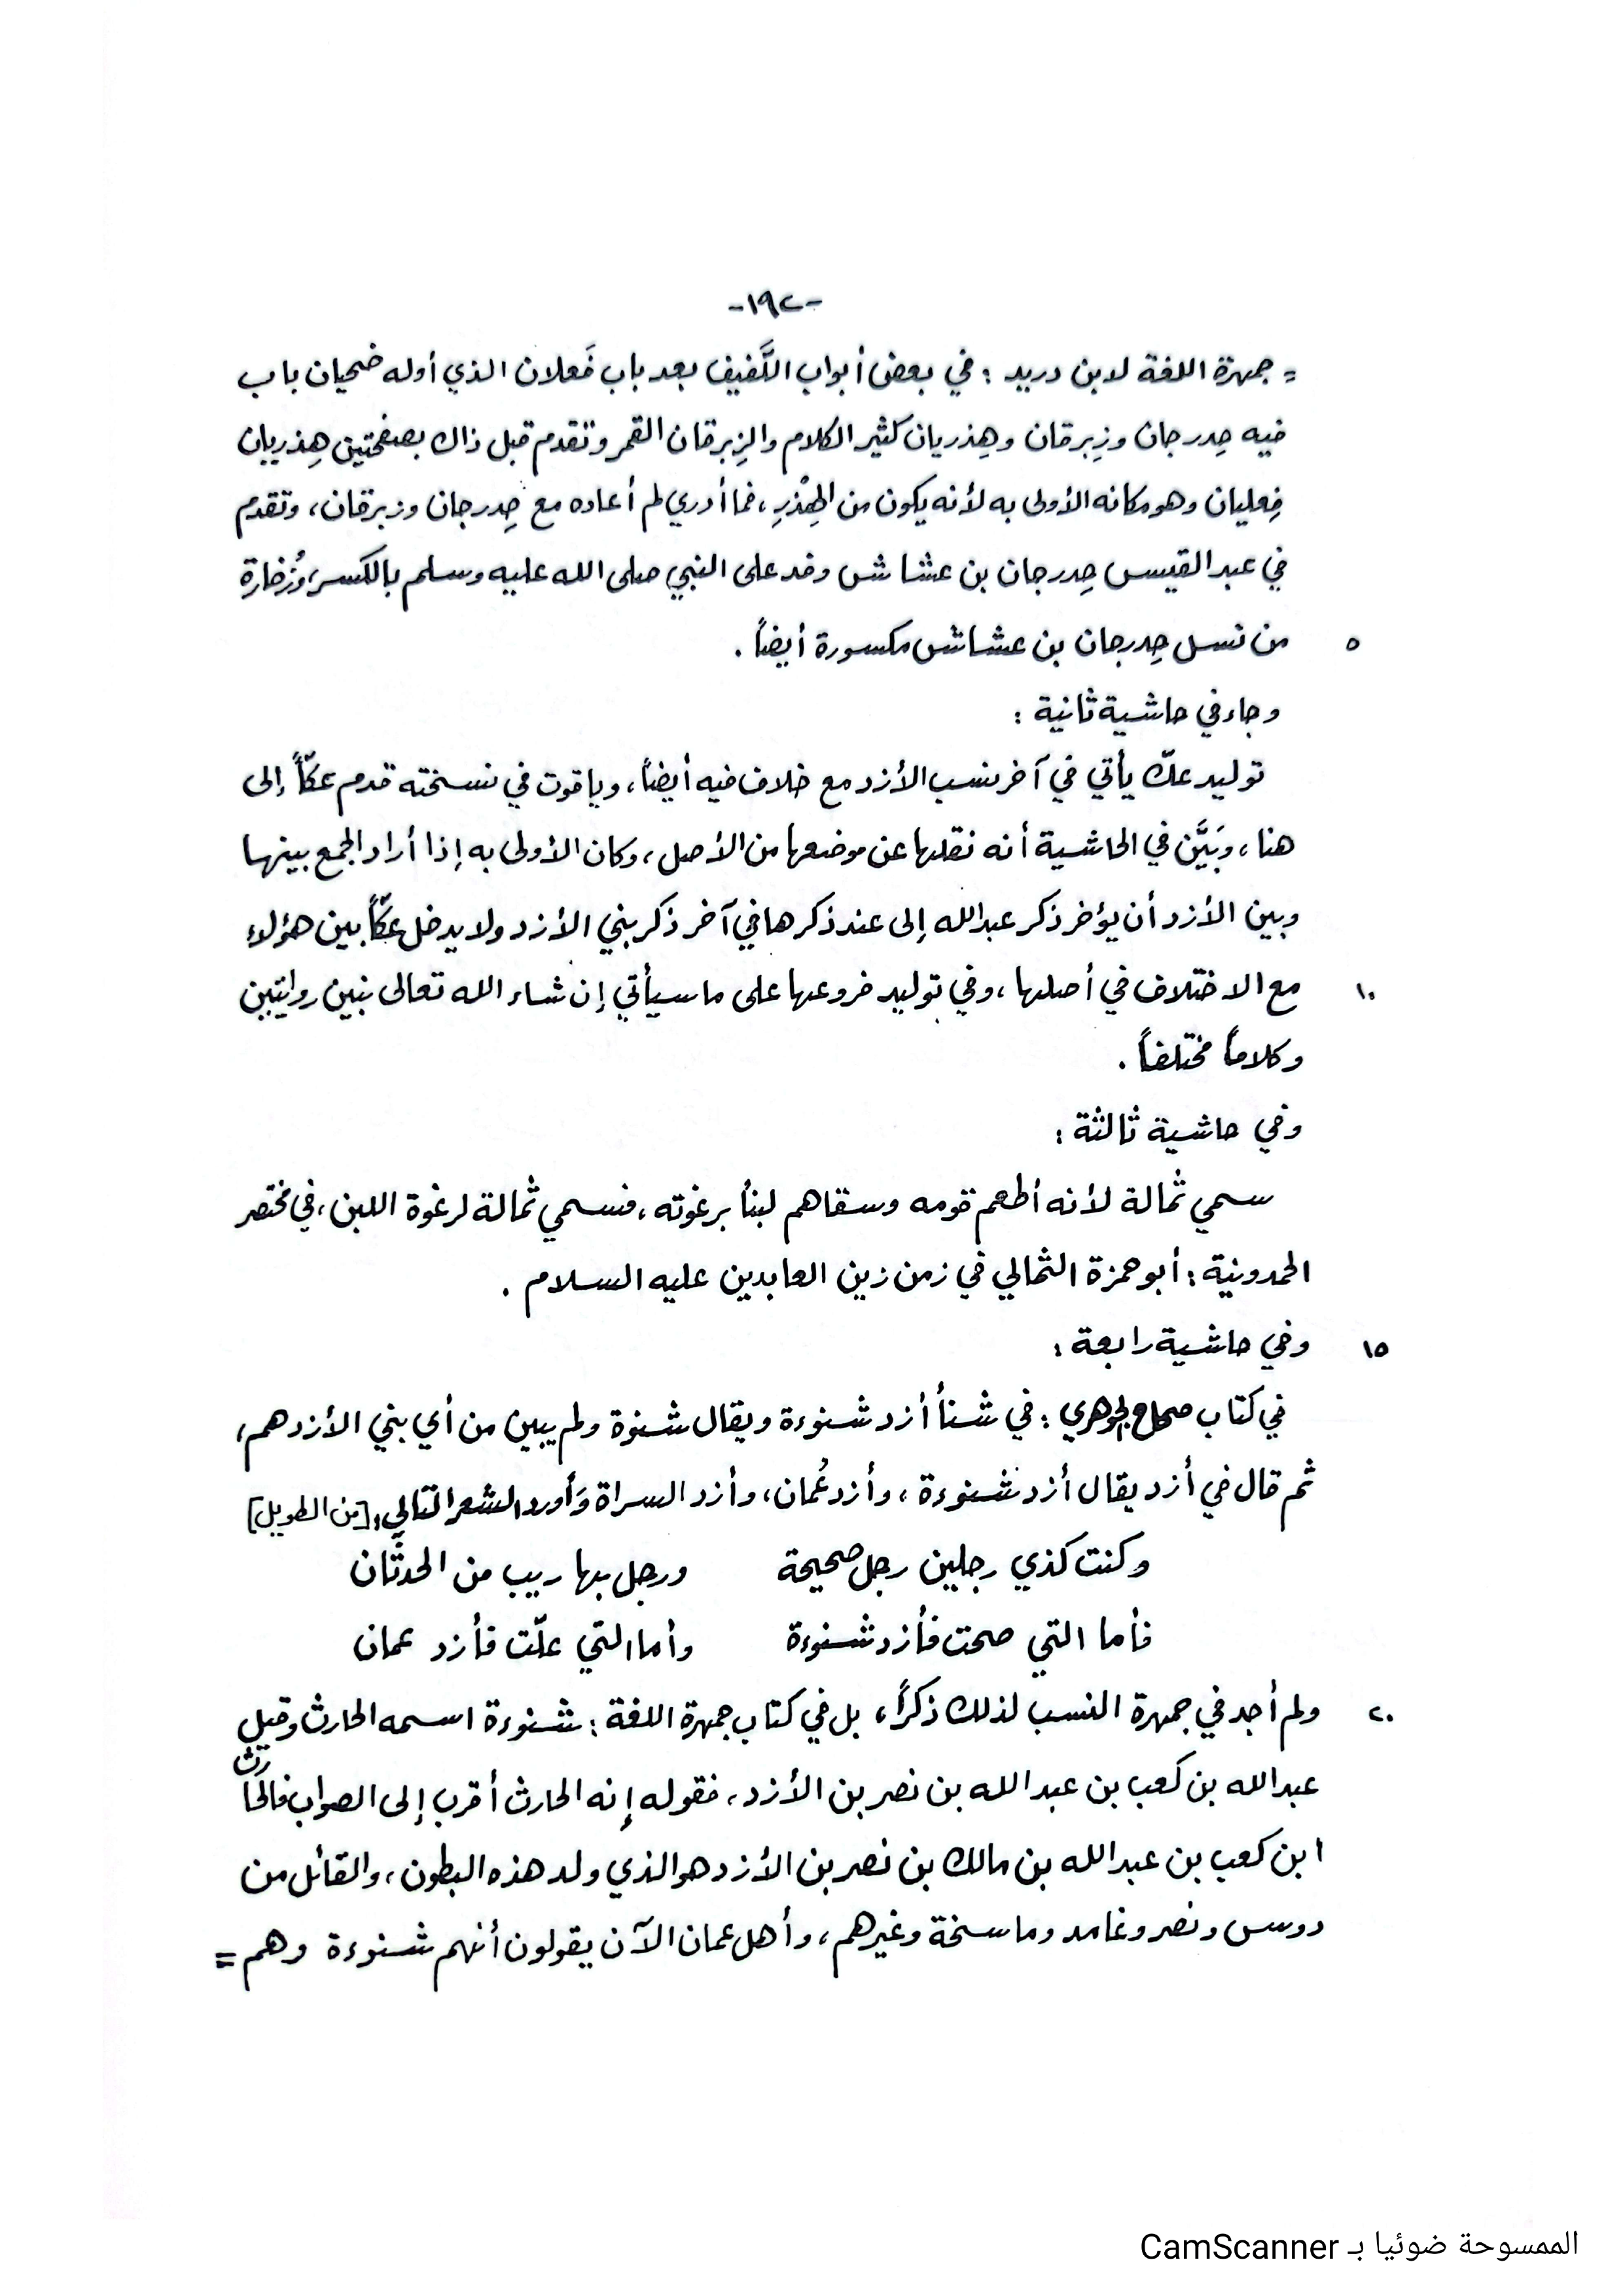 -١٩٢-
= جمهرة اللغة لابن دريد : في بعض أبواب اللَّفيف بعد باب فَعلان الذي أوله ضحيان باب
فيه حِدرجان وزِبرقان وهِذريان كثير الكلام والزِبرقان القمر وتقدم قبل ذاك بصفحتين هِذريان
فِعليان وهو مكانه الأولى به لأنه يكون من الهِذْرِ ، فما أدري لم أعاده مع حِدرجان وزبرقان ، وتقدم
في عبد القيس حِدرجان بن عشاش وفد على النبي صلى الله عليه وسلم بالكسر ،
٥ من نسل حِدرجان بن عشاش مكسورة أيضاً .
وجاء في حاشية ثانية :
توليد عكّ يأتي في آخر نسب الأزد مع خلاف فيه أيضاً ، وياقوت في نسخته قدم عكّاً إلى
هنا ، وبَيَّن في الحاشية أنه نقلها عن موضعها من الأصل ، وكان الأولى به إذا أراد الجمع بينها
وبين الأزد أن يؤخر ذكر عبدالله إلى عند ذكرها في آخر ذكر بني الأزد ولا يدخل عكّاً بين هؤلاء
١٠ مع الاختلاف في أصلها ، وفي توليد فروعها على ما سيأتي إن شاء الله تعالى بنين روايتين
وكلاماً مختلفاً .
وفي حاشية ثالثة :
سمي ثمالة لأنه أطعم قومه وسقاهم لبنأ برغوته ، فسمي ثمالة لرغوة اللبن ، في مختصر
الحمدونية : أبو حمزة الثمالي في زمن زين العابدين عليه السلام .
١٥ وفي حاشية رابعة :
في كتاب صحاح الجوهري : في شنأ أزد شنوءة ويقال شنوة ولم يبين من أي بني الأزد هم ،
ثم قال في أزد يقال أزد شنوءة ، وأزد عُمان ، وأزد السراة وَأورد الشعر التالي : [من الطويل]
وكنت كذي رجلين رجل صحيحة ورجل بها ريب من الحدثَان
فأما التي صحت فأزد شنوءة وأما التي علّت فأزد عمان
٢٠ ولم أجد في جمهرة النسب لذلك ذكراً ، بل في كتاب جمهرة اللغة : شنوءة اسمه الحارث وقيل
عبدالله بن كعب بن عبد الله بن نصر بن الأزد ، فقوله إنه الحارث أقرب إلى الصواب فالحارث
ابن كعب بن عبدالله بن مالك بن نصر بن الأزد هو الذي ولد هذه البطون ، والقائل من
دوس ونصر وغامد وماسخة وغيرهم ، وأهل عمان الآن يقولون أنهم شنوءة وهم =
الممسوحة ضوئيا بـ CamScanner